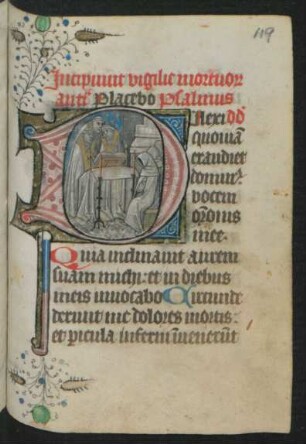 119
Incipiunt vigilie mortuor
ante Placebo Psalmus
Dilexi
quoniā
exaudiet
domin⁹
vocem
orōnis
mee.
Quia inclinavit aurem
suam michi: et in diebus
meis invocabo Circumde
derunt me dolores mortis:
et picula inferni īvenerūt